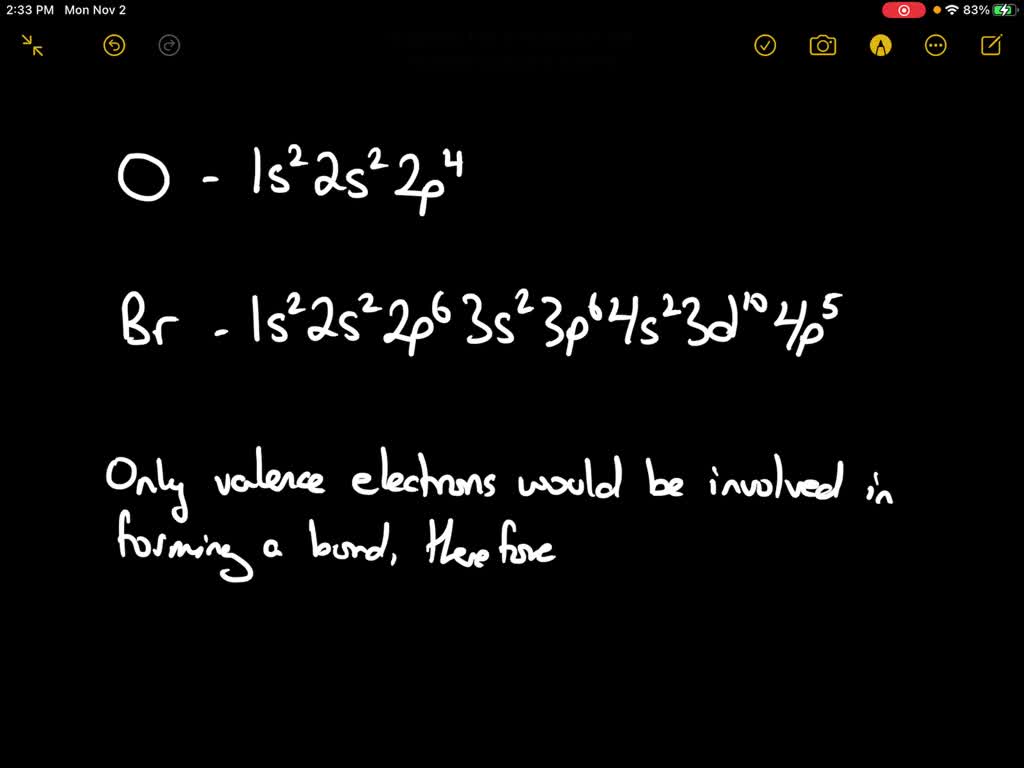 2:33 PM Mon Nov 2 83%
O - 1s² 2s² 2p⁴
Br - 1s² 2s² 2p⁶ 3s² 3p⁶ 4s² 3d¹⁰ 4p⁵
Only valence electrons would be involved in
forming a bond, therefore